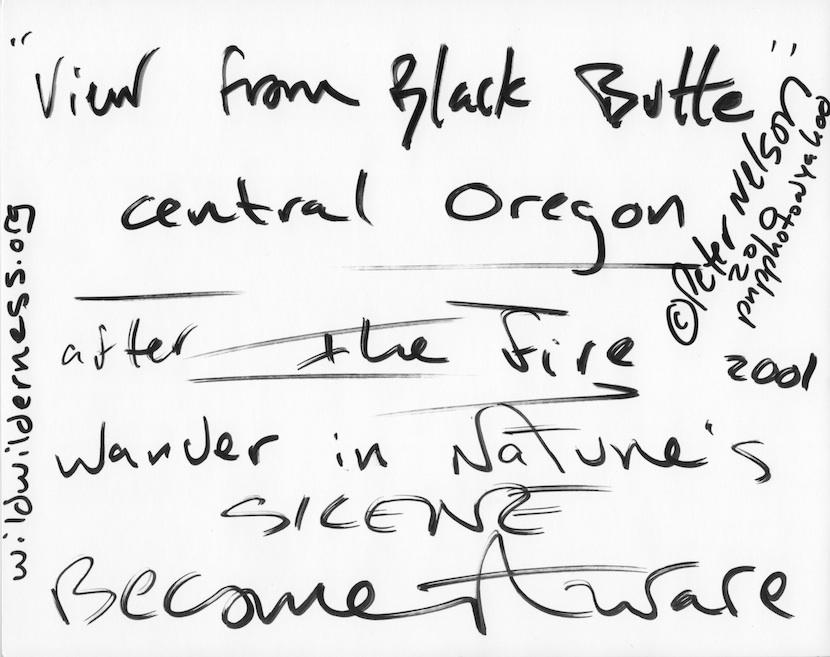 "View from Black Butte"
central Oregon
after the fire
2001
wander in Nature's
SILENCE
Become Aware
© Peter Nelson
2010
pnpphoto@yahoo
wildwilderness.org